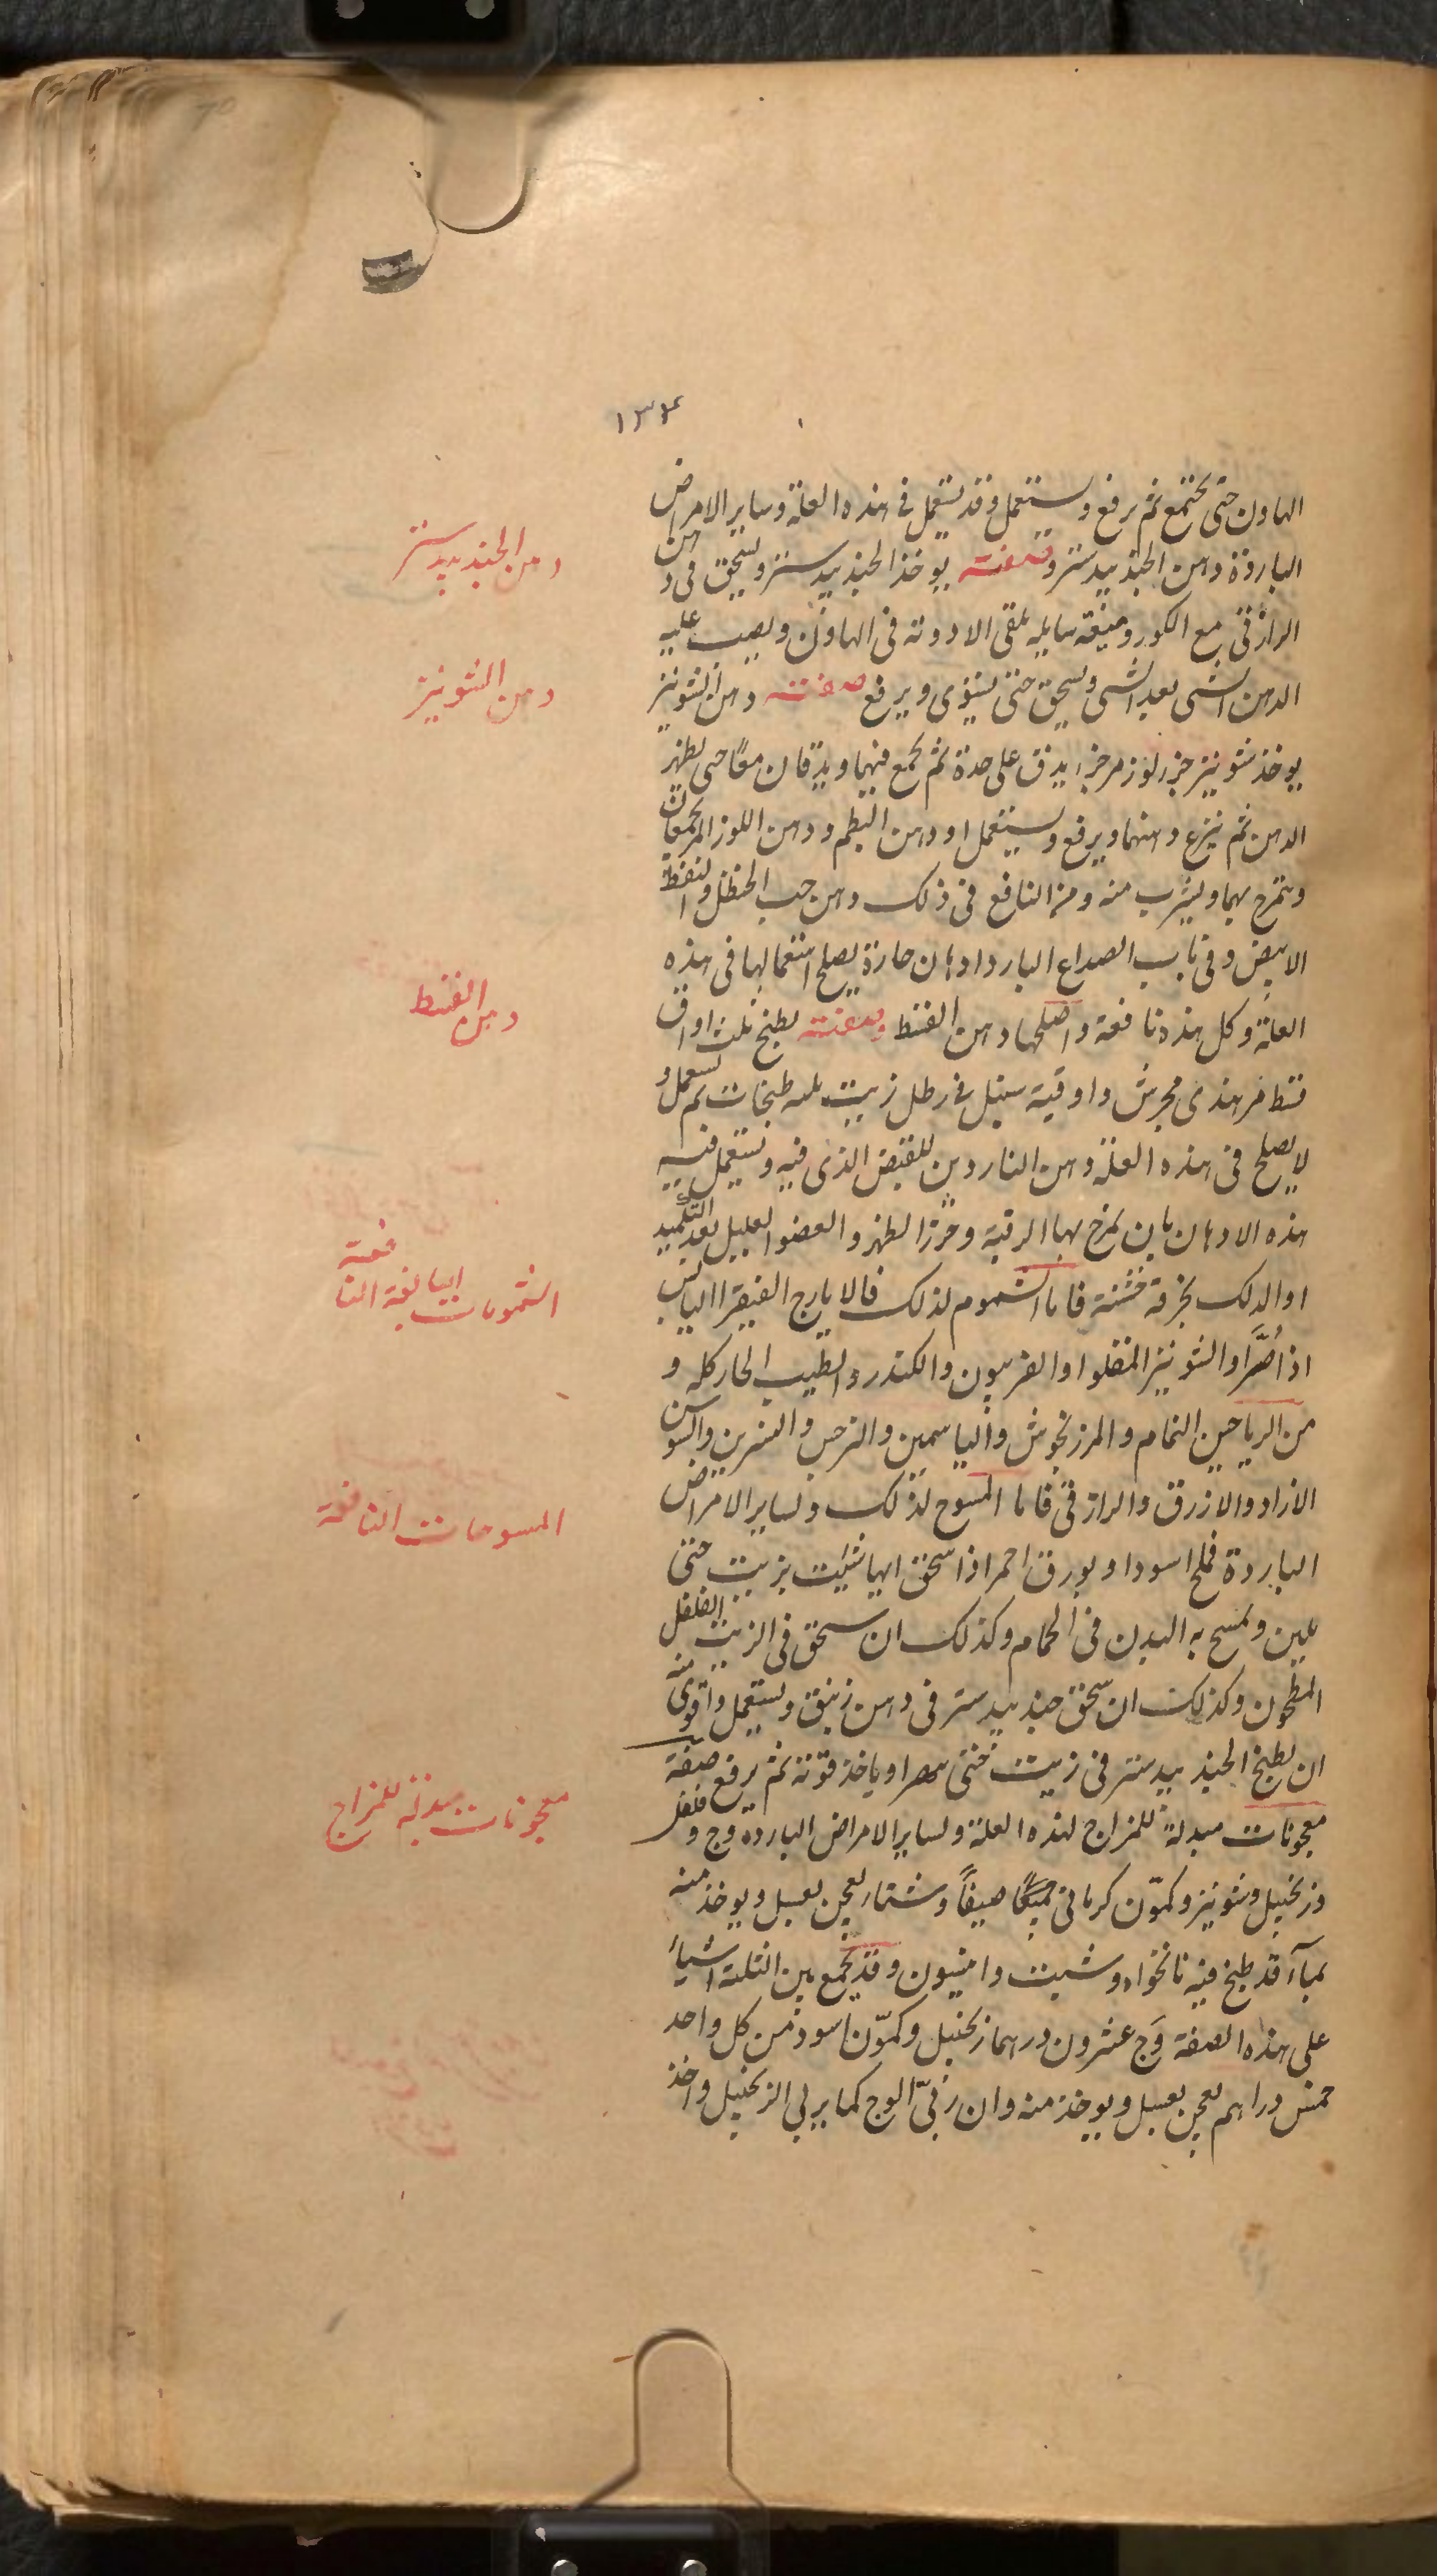 ١٣٤
الهاون حتى يجتمع ثم يرفع ويستعمل وقد يستعمل فى هذه العلة وساير الامراض
الباردة دهن الجندبيدستر وصفته يوخذ الجندبيدستر ويسحق فى دهن
الرازقى مع الكور وميعة سايله يلقى الادوية فى الهاون ويصب عليه
الدهن الشى بعد الشى ويسحق حتى يستوى ويرفع صفته دهن الشونيز
يوخذ شونيز جزء لوز مر جزء يدق على حدة ثم يجمع فيهما ويدقان معًا حتى يظهر
الدهن ثم ينزع دهنهما ويرفع ويستعمل او دهن البطم ودهن اللوز المر يجمعان
ويتمرخ بهما ويشرب منه ومن النافع فى ذلك دهن حب الحنظل والنفط
الابيض وفى باب الصداع البارد ادهان حارة يصلح استعمالها فى هذه
العلة وكل هذه نافعة واصلحها دهن القسط وصفته يطبخ ثلث اواق
قسط مر هندى مجرش واوقية سنبل فى رطل زيت ثلث طبخات ثم يستعمل و
لا يصلح فى هذه العلة دهن الناردين للقبض الذى فيه وتستعمل فيه
هذه الادهان بان يمرخ بها الرقبة وخرز الظهر والعضو العليل بعد التكميد
او الدلك بخرقة خشنة فاما الشموم لذلك فالايارج الفيقرا اليابس
اذا صُرَّ او الشونيز المقلو او الفربيون والكندر والطيب الحار كله و
من الرياحين النمام والمرزنجوش والياسمين والنرجس والنسرين والسوسن
الازاد والازرق والرازقى فاما المسوح لذلك ولساير الامراض
الباردة فملح اسود او بورق احمر اذا سحق ايهما شئت بزيت حتى
يلين ويمسح به البدن فى الحمام وكذلك ان سحق فى الزيت الفلفل
المطحون وكذلك ان سحق جندبيدستر فى دهن زنبق ويستعمل واقوى منه
ان يطبخ الجندبيدستر فى زيت حتى وياخذ قوته ثم يرفع صفة
معجونات مبدلة للمزاج لهذه العلة ولساير الامراض الباردة وج وفلفل
وزنجبيل وشونيز وكمّون كرمانى صيفًا وشتاء يعجن بعسل ويوخذ منه
بمآء قد طبخ فيه نانخواه وشبت وانيسون وقد يجمع بين الثلثة اشياء
على هذه الصفة وَج عشرون درهما زنجبيل وكمّون اسود من كل واحد
خمس دراهم يعجن بعسل ويوخذ منه وان رُبّى الوج كما يربى الزنجبيل واخذ
دهن الجندبيدستر
دهن الشونيز
دهن القسط
الشمومات النافعة
المسوحات النافعة
معجونات مبدلة للمزاج